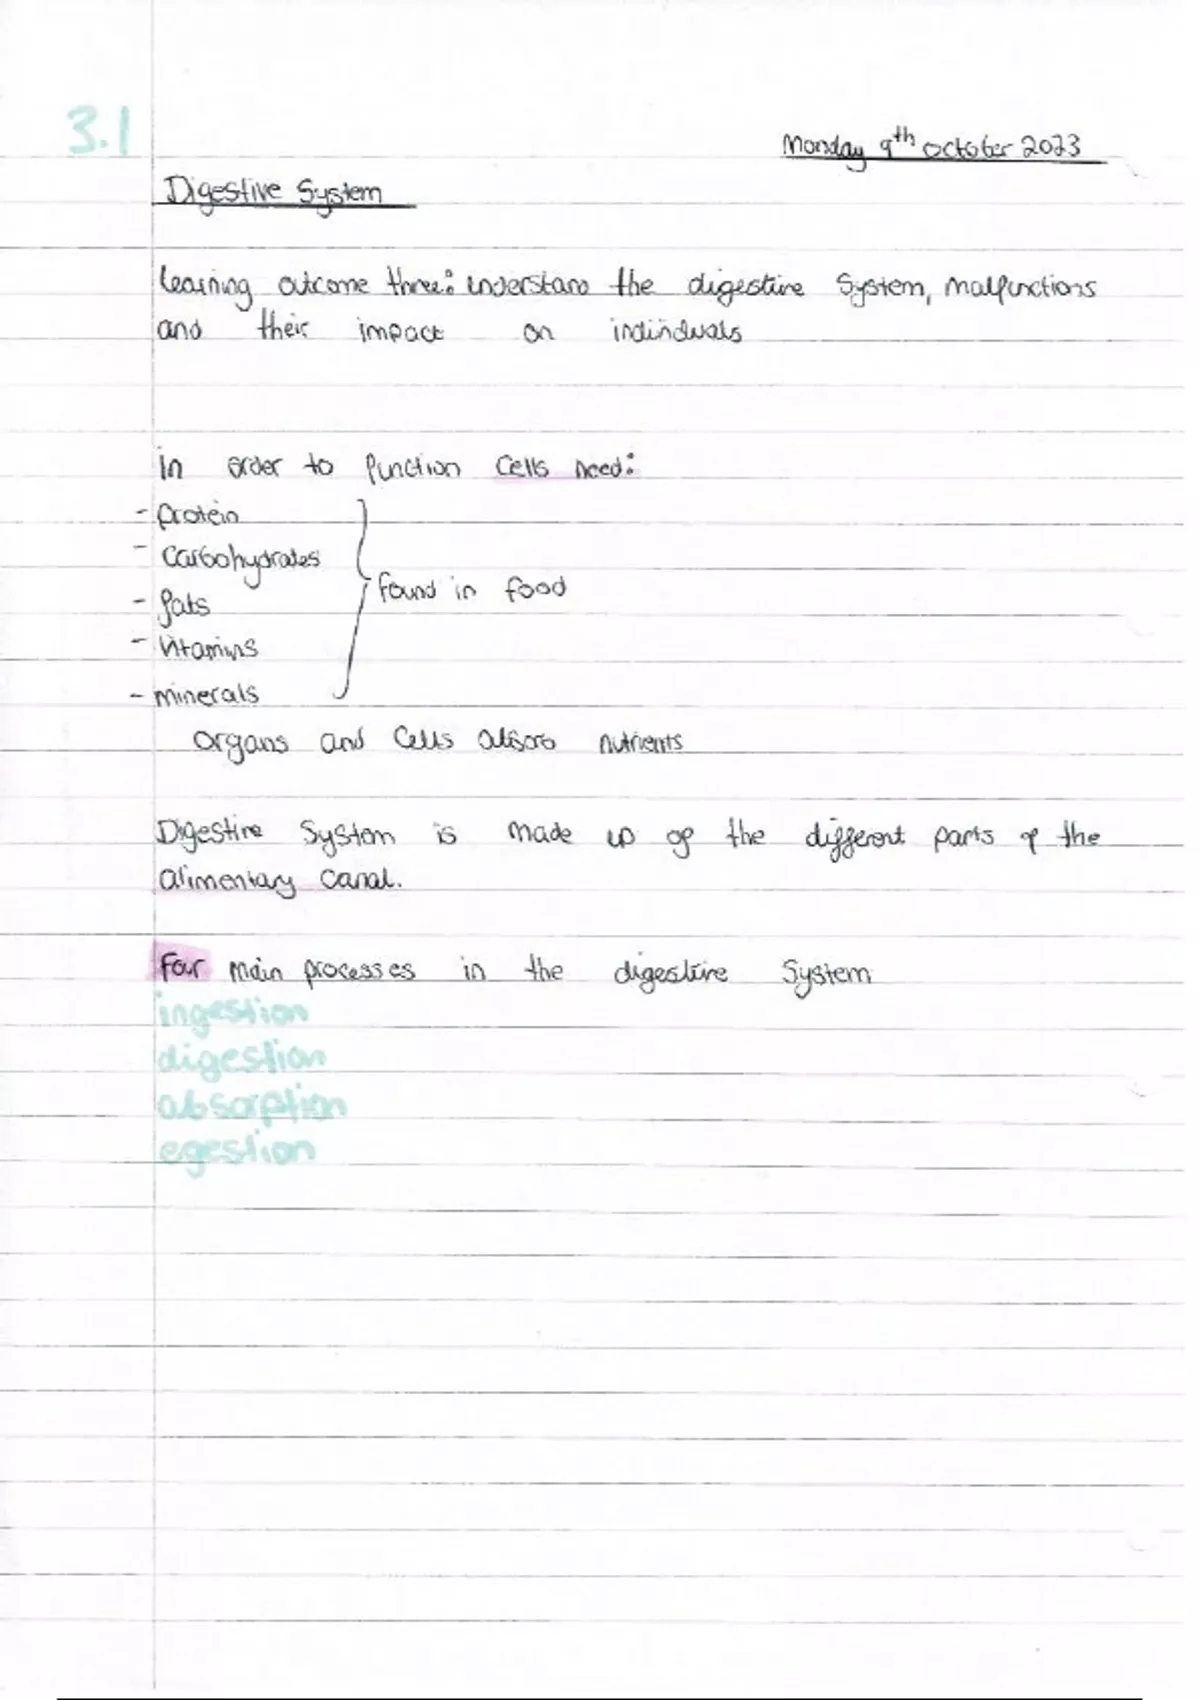 3.1
Monday 9th october 2023
Digestive System
learning outcome three: understand the digestive System, malfunctions
and their impact on individuals
in order to function Cells need:
- protein
- Carbohydrates
- fats
- vitamins
- minerals
found in food
organs and Cells absorb nutrients
Digestive System is made up of the different parts of the
alimentary canal.
Four main processes in the digestive System
ingestion
digestion
absorption
egestion